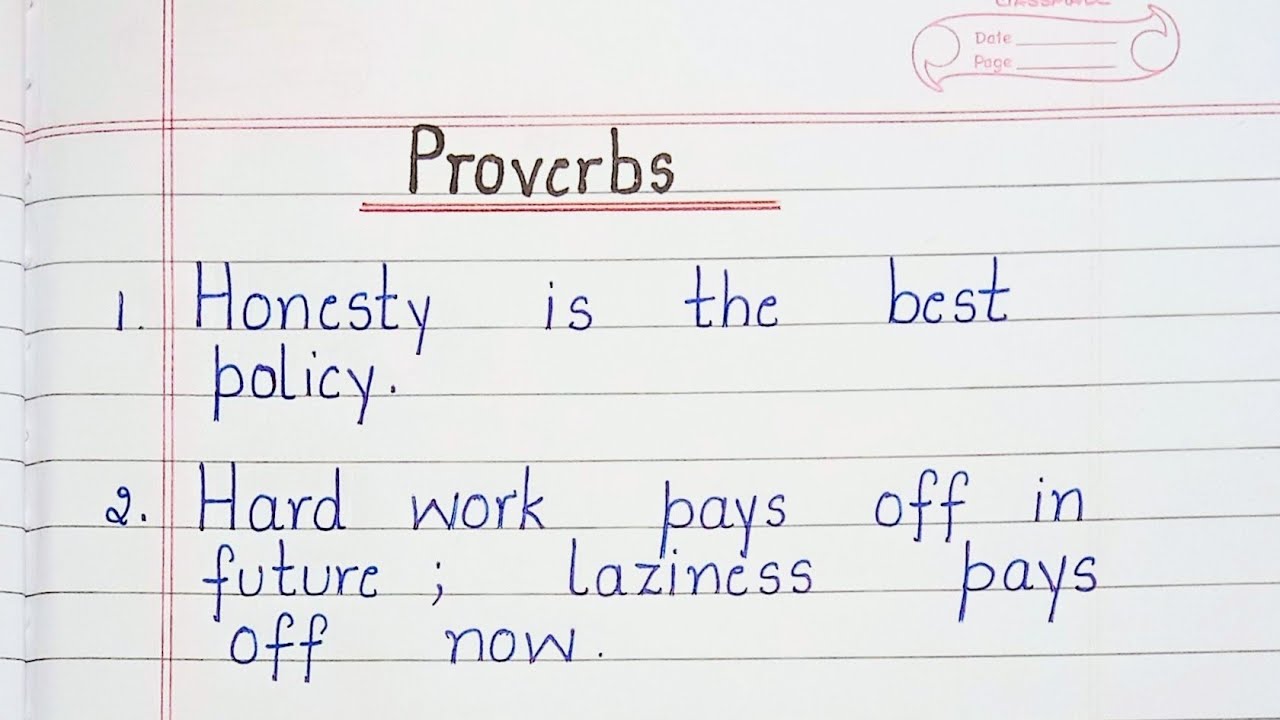 Date
Page
Proverbs
1. Honesty is the best
policy.
2. Hard work pays off in
future ; laziness pays
off now.